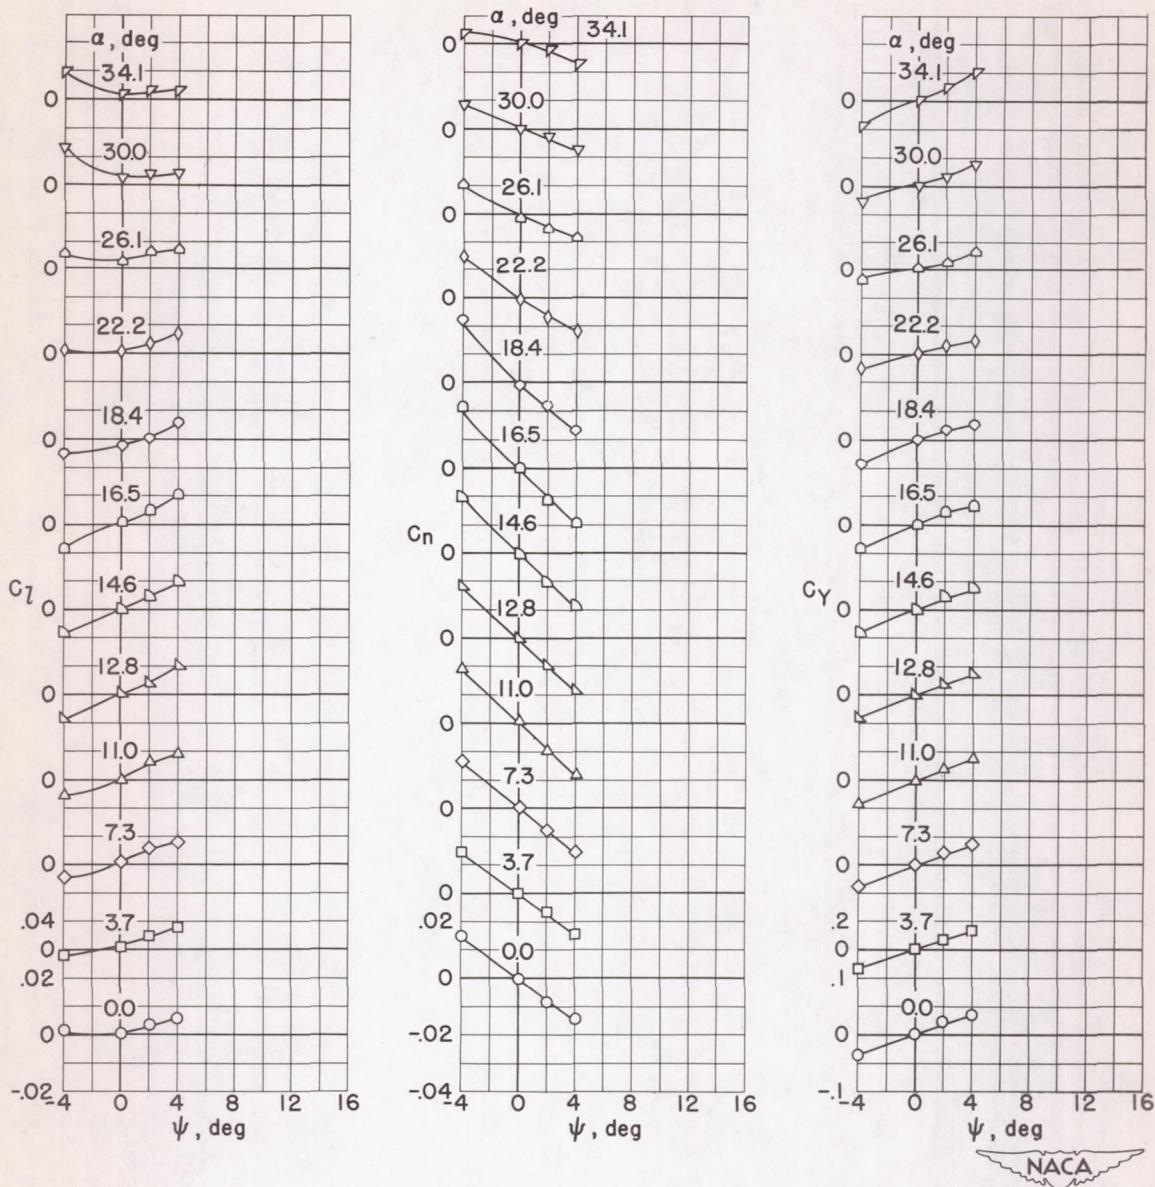 α, deg
34.1
0
30.0
0
26.1
0
22.2
0
18.4
0
16.5
0
14.6
C_l
0
12.8
0
11.0
0
7.3
0
.04
3.7
0
.02
0.0
0
-.02
-4 0 4 8 12 16
ψ, deg
α, deg
34.1
0
30.0
0
26.1
0
22.2
0
18.4
0
16.5
0
14.6
C_n
0
12.8
0
11.0
0
7.3
0
3.7
0
.02
0.0
0
-.02
-.04
-4 0 4 8 12 16
ψ, deg
α, deg
34.1
0
30.0
0
26.1
0
22.2
0
18.4
0
16.5
0
14.6
C_Y
0
12.8
0
11.0
0
7.3
0
.2
3.7
0
.1
0.0
0
-.1
-4 0 4 8 12 16
ψ, deg
NACA